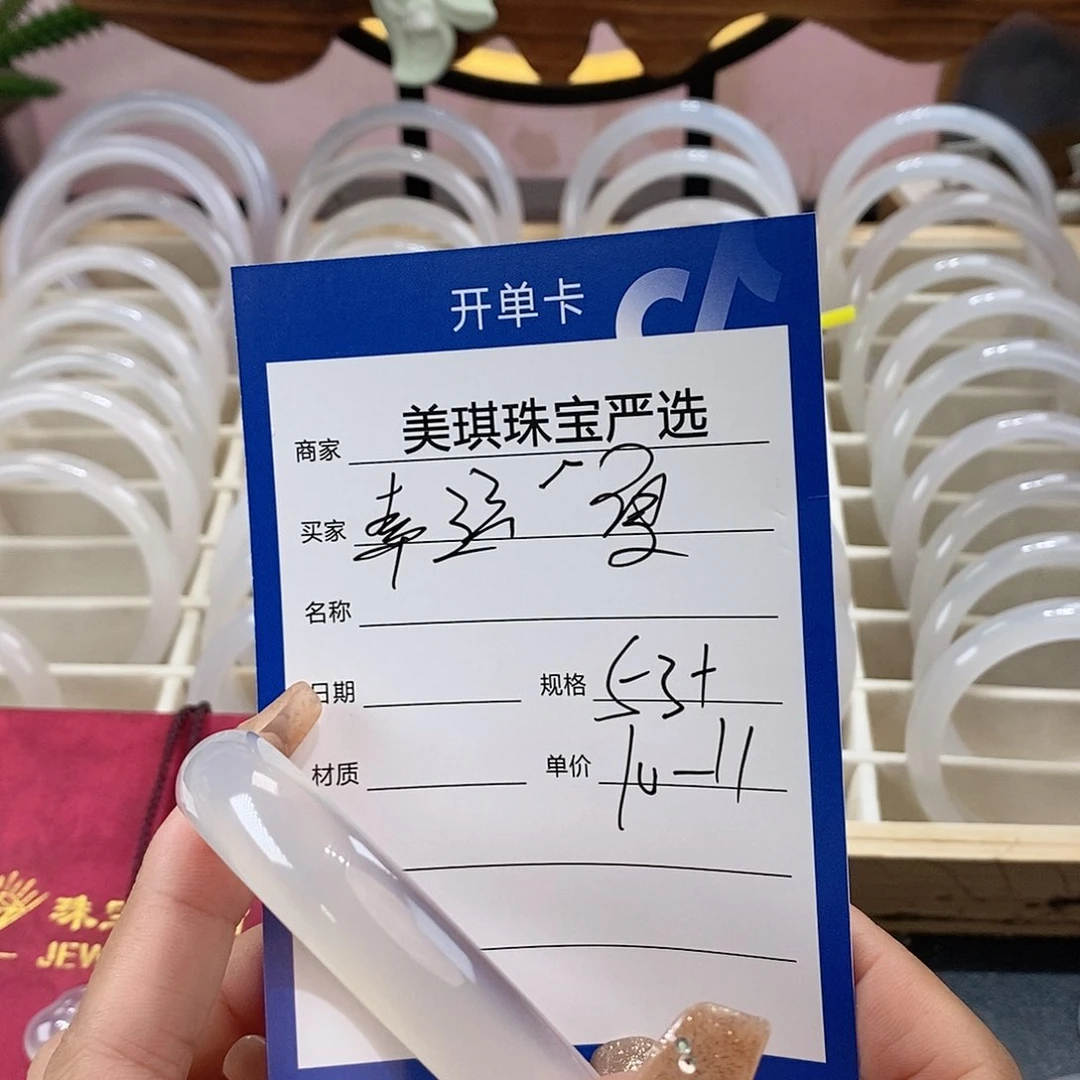 开单卡
商家 美琪珠宝严选
买家 幸运
名称
日期 规格 53+
材质 单价
珠宝
JEW